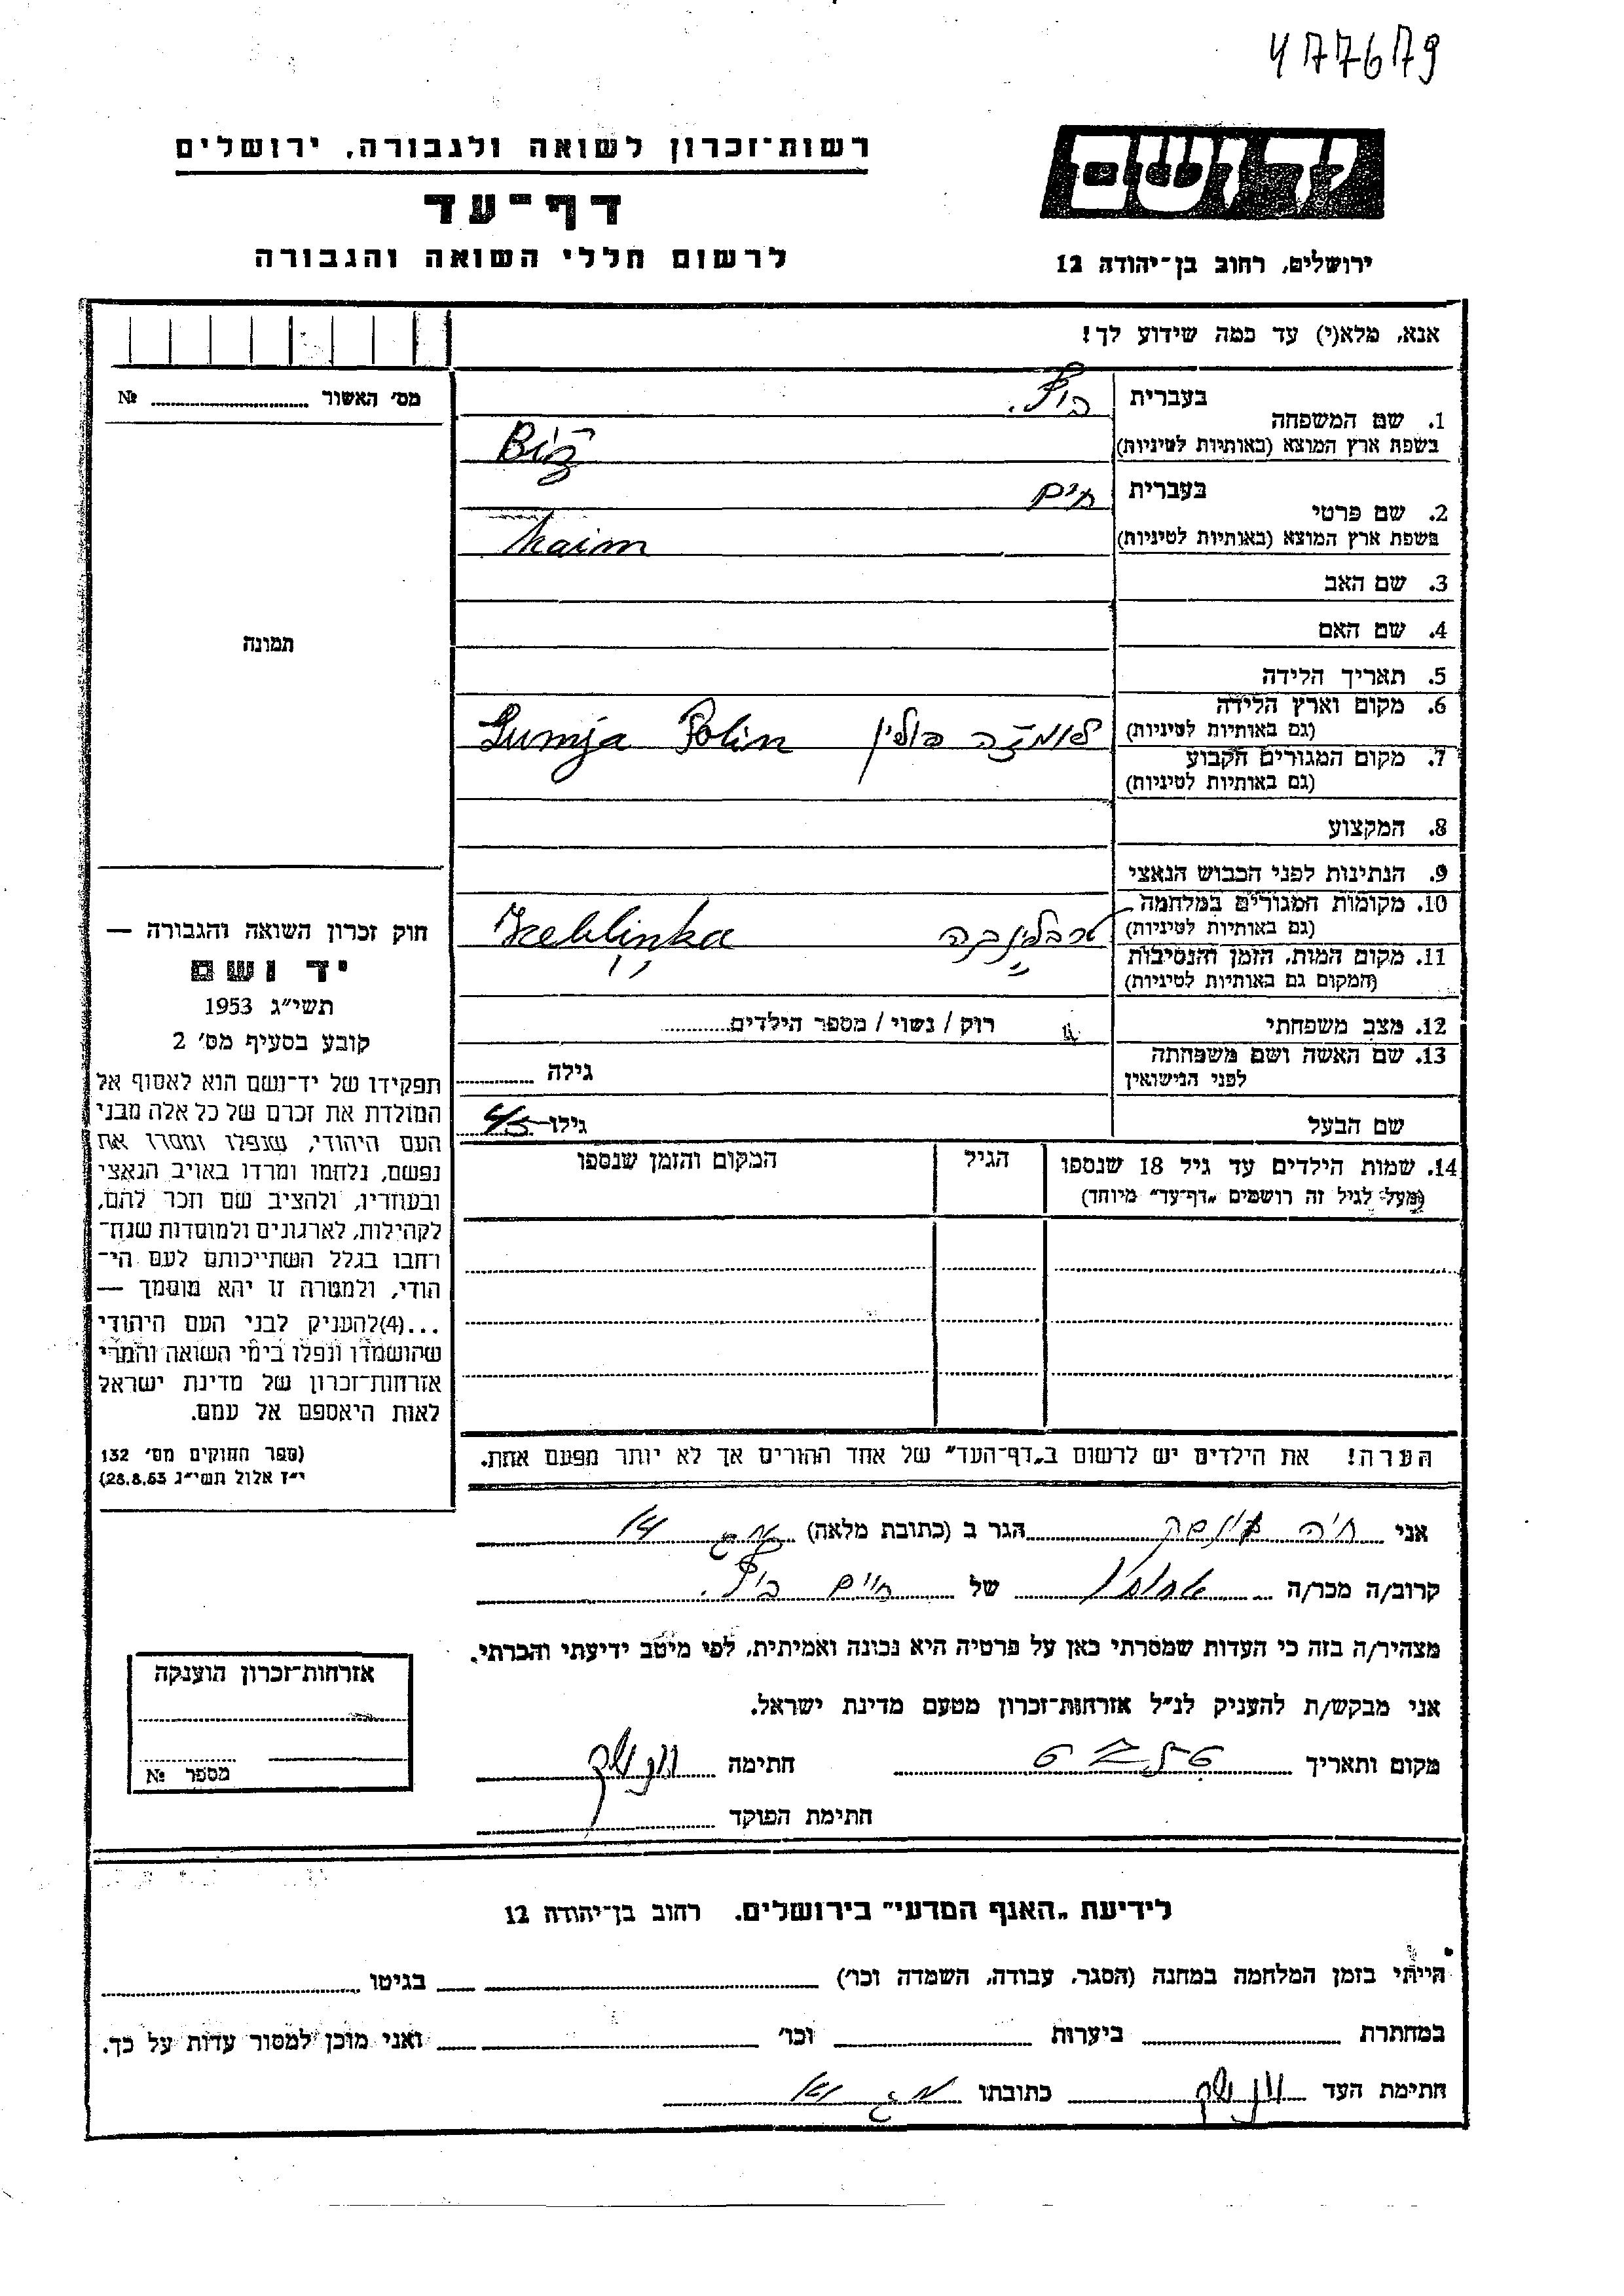 477679
רשות־זכרון לשואה ולגבורה, ירושלים
דף־עד
לרשום חללי השואה והגבורה
יד ושם
ירושלים, רחוב בן־יהודה 12
אנא, מלא(י) עד כמה שידוע לך!
מס׳ האשור № 
1. שם המשפחה
בעברית
בשפת ארץ המוצא (באותיות לטיניות)
2. שם פרטי
בעברית חיים
בשפת ארץ המוצא (באותיות לטיניות) Haim
3. שם האב
4. שם האם
5. תאריך הלידה
6. מקום וארץ הלידה
(גם באותיות לטיניות) לומזה פולין Lumja Polin
7. מקום המגורים הקבוע
(גם באותיות לטיניות)
8. המקצוע
9. הנתינות לפני הכבוש הנאצי
10. מקומות המגורים במלחמה
(גם באותיות לטיניות) טרבלינקה Treblinka
11. מקום המות, הזמן והנסיבות
(המקום גם באותיות לטיניות)
12. מצב משפחתי רוק / נשוי / מספר הילדים
13. שם האשה ושם משפחתה
לפני הנישואין גילה
שם הבעל גילו 45
14. שמות הילדים עד גיל 18 שנספו
(מעל לגיל זה רושמים „דף־עד״ מיוחד)
הגיל
המקום והזמן שנספו
הערה! את הילדים יש לרשום ב„דף־העד״ של אחד ההורים אך לא יותר מפעם אחת.
תמונה
חוק זכרון השואה והגבורה —
יד ושם
תשי״ג 1953
קובע בסעיף מס׳ 2
תפקידו של יד־ושם הוא לאסוף אל
המולדת את זכרם של כל אלה מבני
העם היהודי, שנפלו ומסרו את
נפשם, נלחמו ומרדו באויב הנאצי
ובעוזריו, ולהציב שם וזכר להם,
לקהילות, לארגונים ולמוסדות שנח־
רחבו בגלל השתייכותם לעם הי־
הודי, ולמטרה זו יהא מוסמך —
...(4)להעניק לבני העם היהודי
שהושמדו ונפלו בימי השואה והמרי
אזרחות־זכרון של מדינת ישראל
לאות היאספם אל עמם.
(ספר החוקים מס׳ 132
י״ז אלול תשי״ג 28.8.53)
אני חיה הגר ב (כתובת מלאה)
קרוב/ה מכר/ה של חיים
מצהיר/ה בזה כי העדות שמסרתי כאן על פרטיה היא נכונה ואמיתית, לפי מיטב ידיעתי והכרתי.
אני מבקש/ת להעניק לנ״ל אזרחות־זכרון מטעם מדינת ישראל.
מקום ותאריך חתימה
חתימת הפוקד
אזרחות־זכרון הוענקה
מספר №
לידיעת „האגף המדעי״ בירושלים, רחוב בן־יהודה 12
הייתי בזמן המלחמה במחנה (הסגר, עבודה, השמדה וכו׳) בגיטו
במחתרת ביערות וכו׳ ואני מוכן למסור עדות על כך.
חתימת העד כתובתו